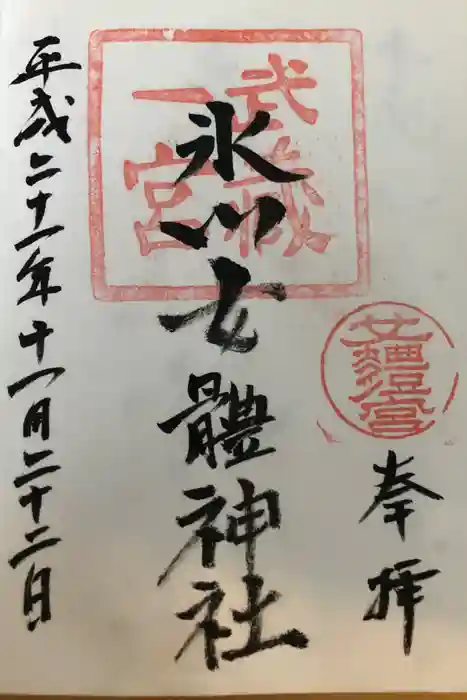 奉拝
武蔵
一宮
氷川女體神社
平成二十一年十一月二十二日